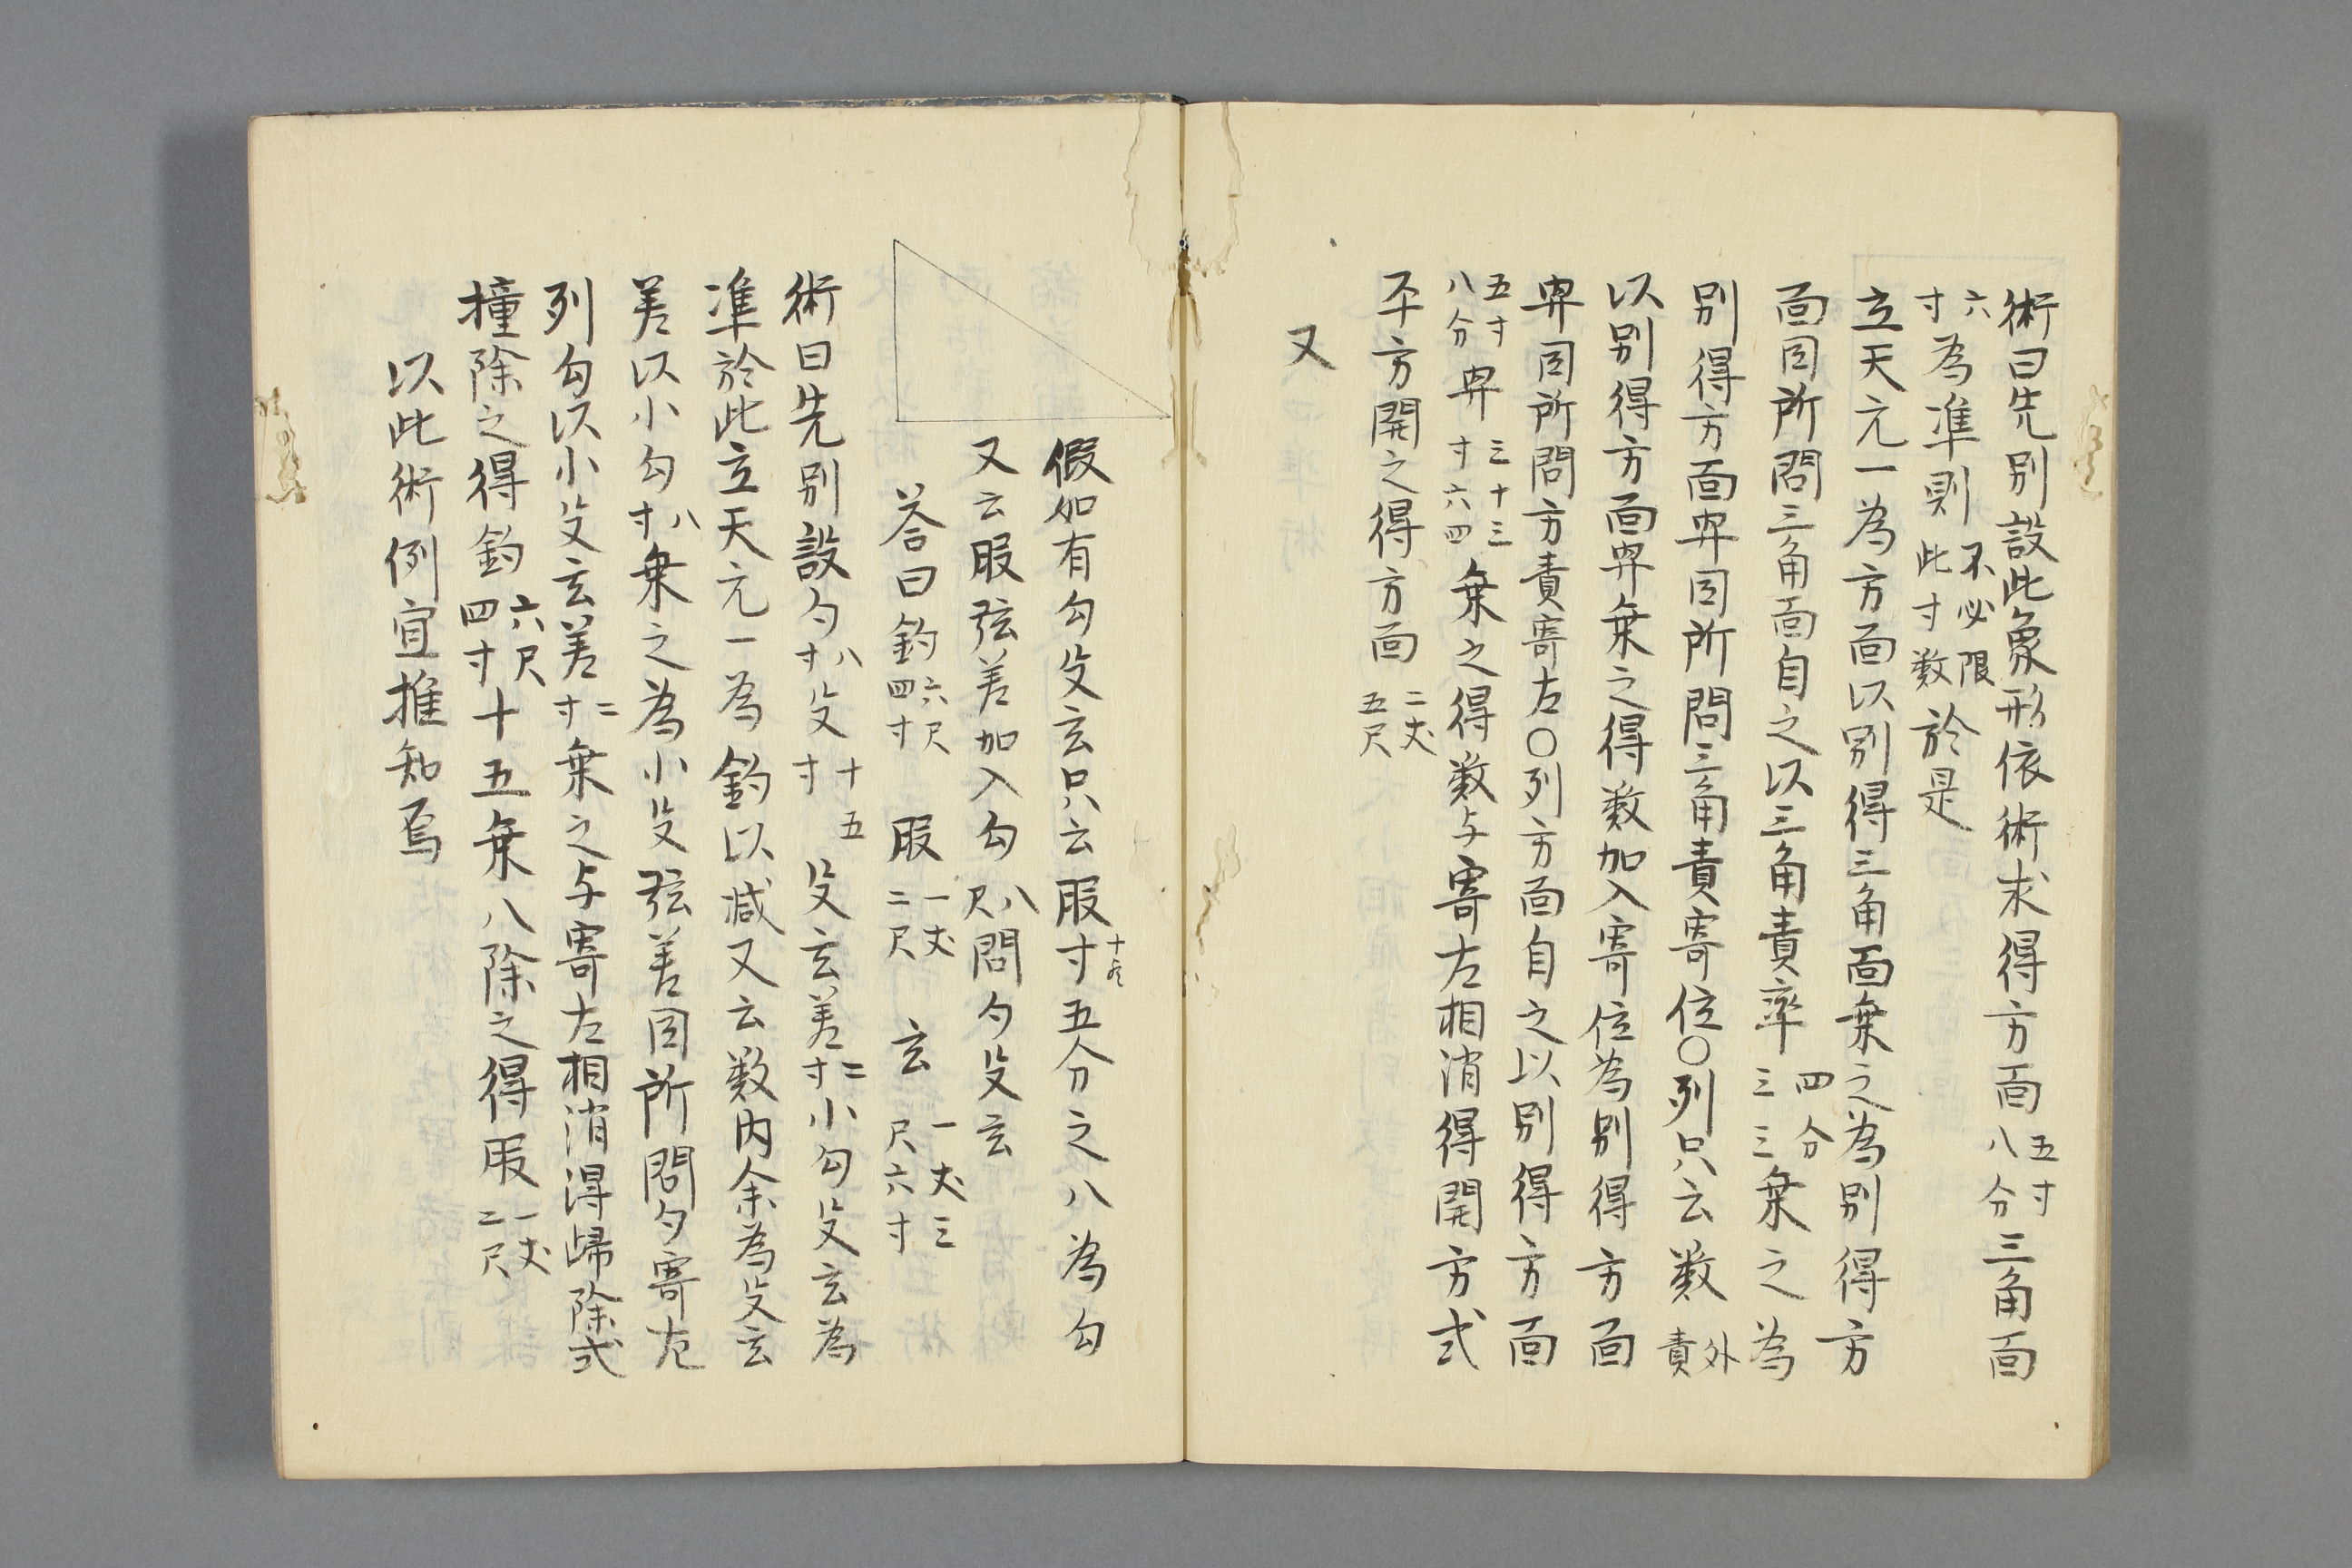 術曰先別設此象形依術求得方面五寸八分三角面
六寸為準則不必限此寸数於是
立天元一為方面以別得三角面乗之為別得方
面因所問三角面自之以三角責率四分三三乗之為
別得方面冪因所問三角責寄位〇列只云数外責
以別得方面冪乗之得数加入寄位為別得方面
冪因所問方責寄左〇列方面自之以別得方面
五寸八分冪三十三寸六四乗之得数与寄左相消得開方式
平方開之得方面二丈五尺
又
假如有勾殳玄只云股寸五分之八為勾
又云股弦差加入勾八尺問勾殳玄
答曰釣六尺四寸 股一丈二尺 玄一丈三尺六寸
術曰先別設勾八寸殳十五寸 殳玄差二寸小勾殳玄為
準於此立天元一為釣以減又云数内余為殳玄
差以小勾八寸乗之為小殳弦差因所問勾寄左
列勾以小殳玄差二寸乗之与寄左相消得歸除式
撞除之得釣六尺四寸十五乗八除之得股一丈二尺
以此術例宜推知焉